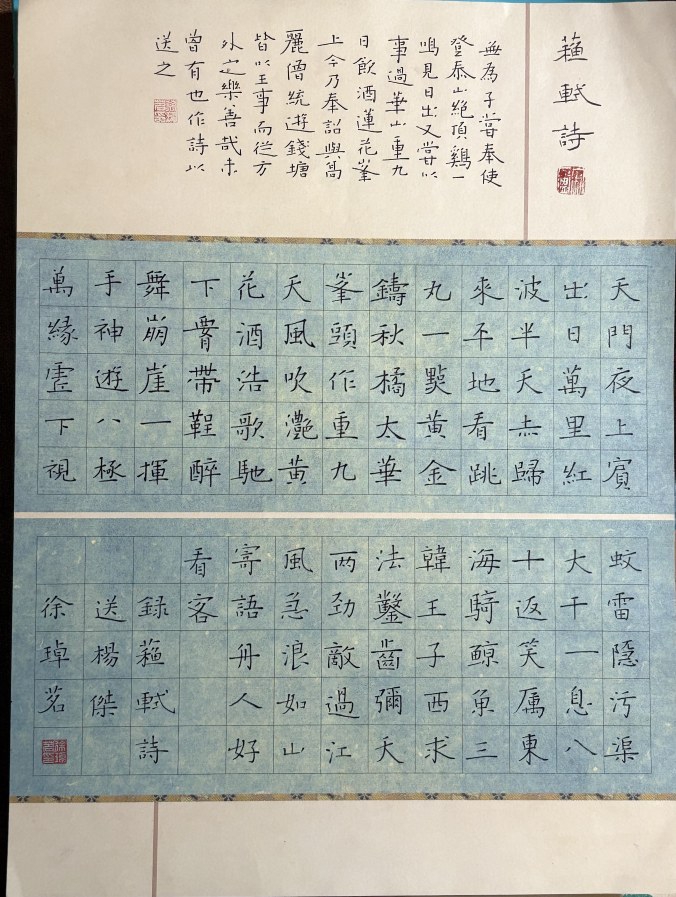 蘓軾詩
無為子嘗奉使
登泰山絶頂鷄一
鳴見日出又嘗以
事過華山重九
日飲酒蓮花峯
上今乃奉詔與高
麗僧統遊錢塘
皆以王事而從方
外定樂善哉未
曾有也作詩以
送之
天門夜上賓
出日萬里紅
波半天赤歸
來平地看跳
丸一點黃金
鑄秋橘太華
峯頭作重九
天風吹灩黃
花酒浩歌馳
下腰帶鞓醉
舞崩崖一揮
手神遊八極
萬緣虛下視
蚊雷隱污渠
大千一息八
十返笑厲東
海騎鯨魚三
韓王子西求
法鑿齒彌天
两劲敵過江
風急浪如山
寄語舟人好
看客
録蘓軾詩
送楊傑
徐琸茗